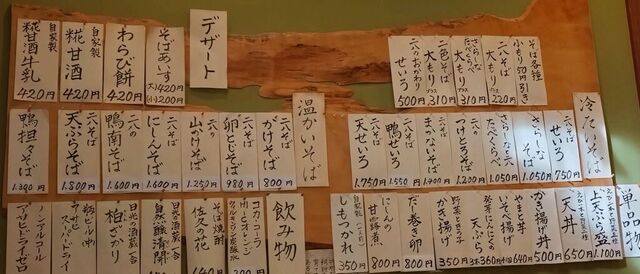 デザート
そばあいす
大420円
小200円
わらび餅
420円
自家製
糀甘酒
420円
自家製
糀甘酒牛乳
420円
そば各種
小もり50円引き
二八そば
大もり
プラス
220円
さらしな
大もり
プラス
310円
二色そば
大もり
プラス
310円
二八のおかわり
せいろ
500円
冷たいそば
二八そば
せいろ
750円
さらしな
そば
1.050円
さらしなと二八
1.050円
二八そば
つけとろそば
1.200円
二八そば
まかないそば
1.400円
二八そば
鴨せいろ
1.550円
二八そば
天せいろ
1.750円
温かいそば
二八そば
かけそば
800円
二八そば
卵とじそば
980円
二八の
山かけそば
1.250円
二八そば
にしんそば
1.600円
二八の
鴨南そば
1.600円
二八そば
天ぷらそば
1.800円
鴨担々そば
単品物
上天ぷら盛
1.100円
天丼
650円
かき揚げ丼
500円
やまと芋
いそべ揚げ
天ぷら
野菜ときのこ
かき揚げ
だし巻き卵
800円
にしんの
甘露煮
800円
自家製
しもつかれ
350円
飲み物
コカ・コーラ
そば焼酎
佐久の花
日光の酒蔵
自然醸清開
日光の酒蔵
柏ざかり
瓶ビール(中)
スーパードライ
ノンアルコール
アサヒドライゼロ